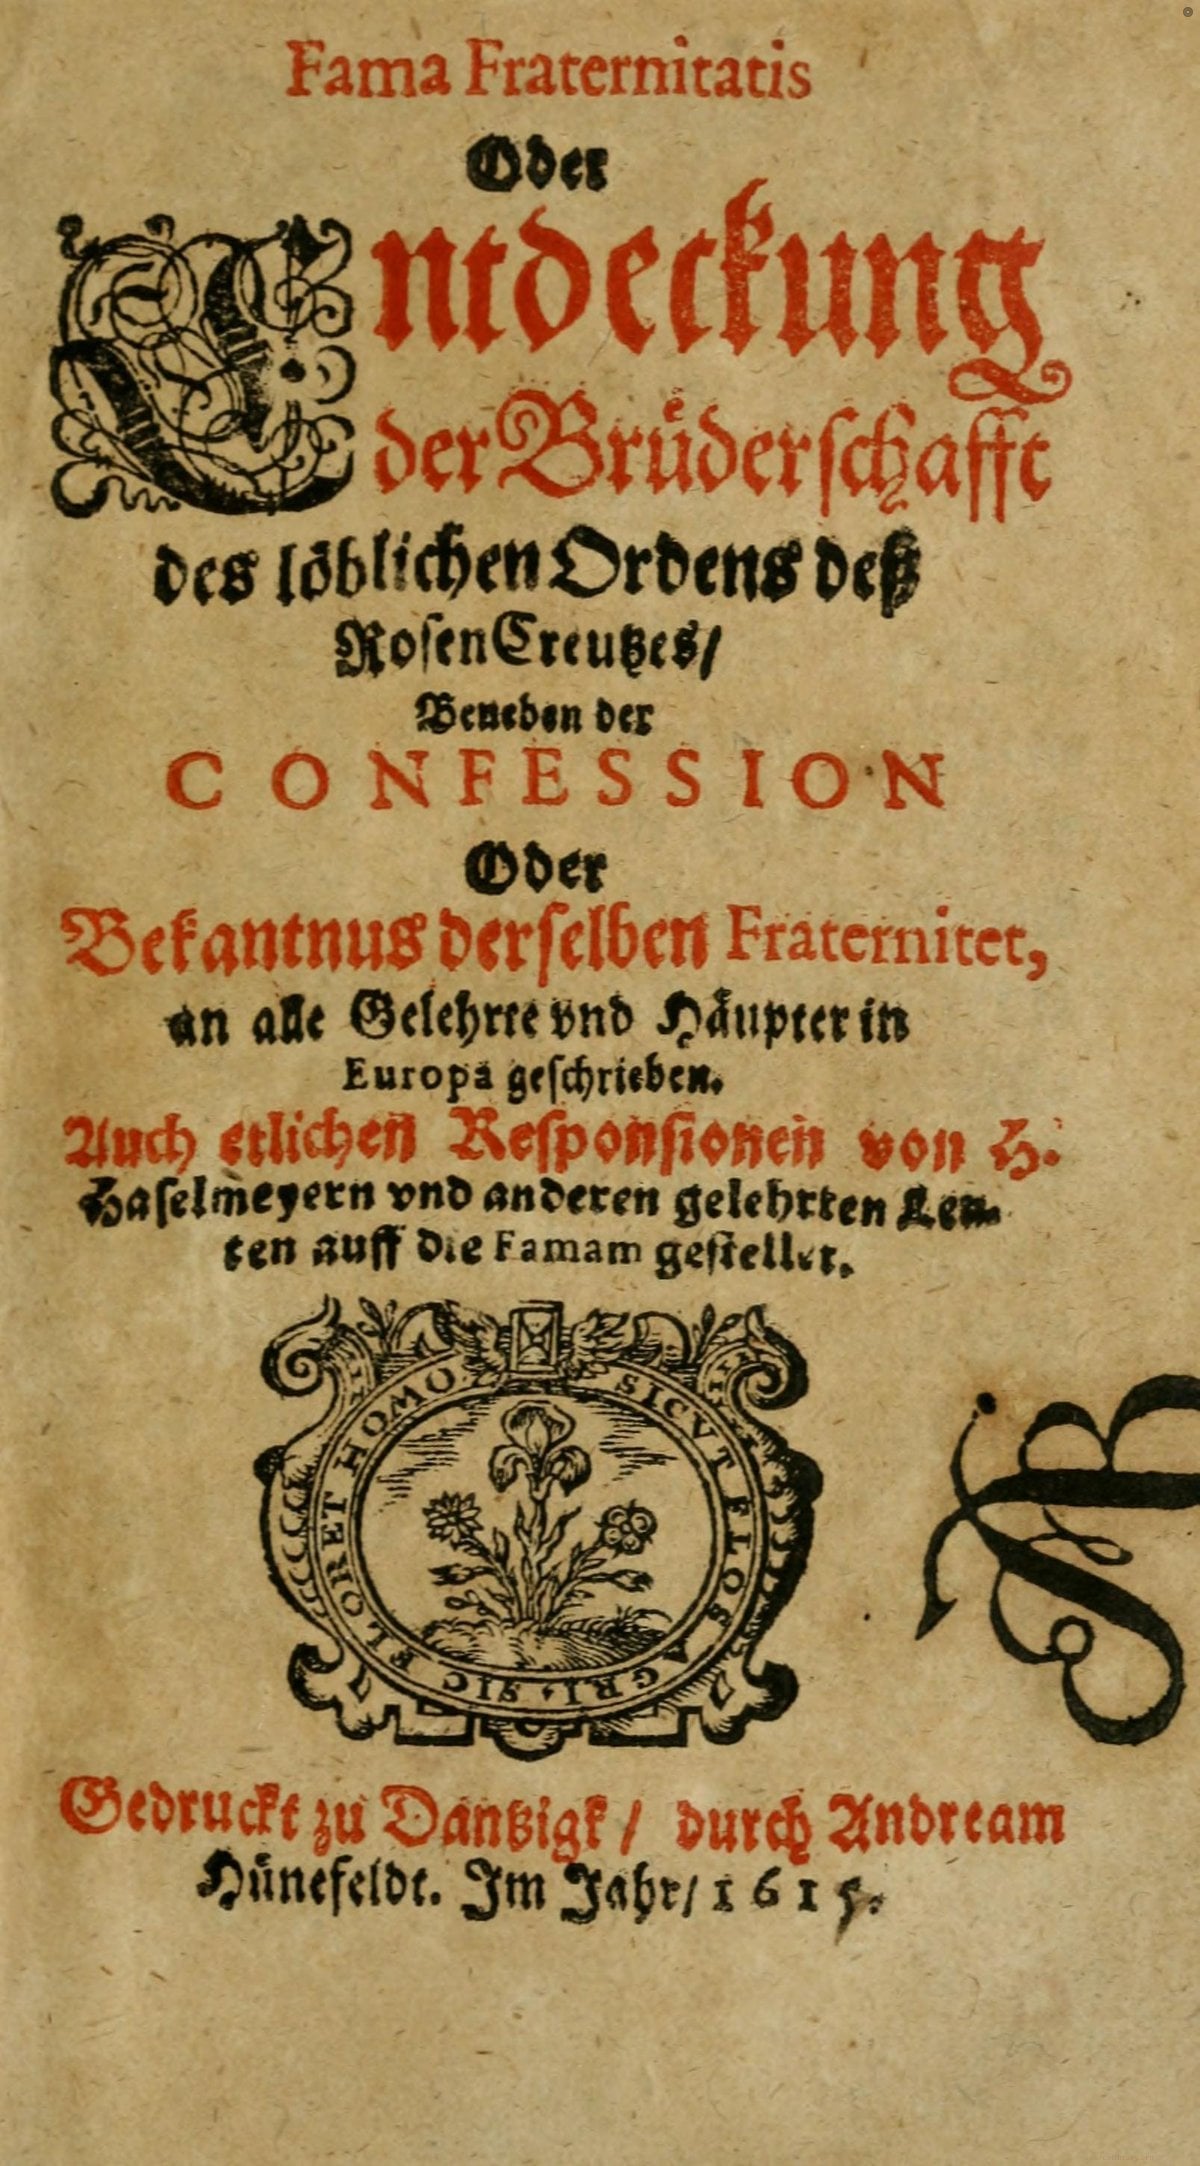 Fama Fraternitatis
Oder
Entdeckung
der Brüderschafft
des löblichen Ordens deß
RosenCreutzes/
Beneben der
CONFESSION
Oder
Bekantnus derselben Fraternitet,
an alle Gelehrte vnd Häupter in
Europa geschrieben.
Auch etlichen Responsionen von H.
Haselmeyern vnd anderen gelehrten Leu-
ten auff die Famam gestellet.
SICVT FLOS AGRI. SIC FLORET HOMO
Gedruckt zu Dantzigk/ durch Andream
Hünefeldt. Im Jahr/ 1615.